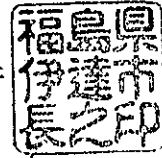 福島県
伊達市
長之印